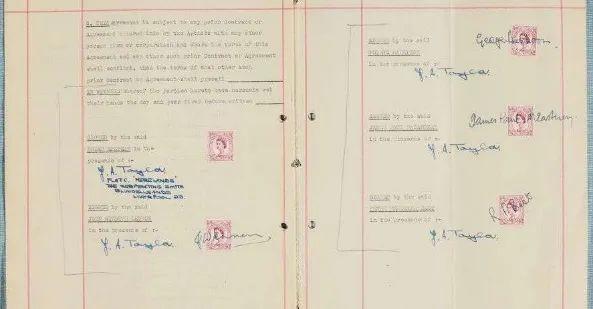 8. THIS Agreement is subject to any prior Contract or
Agreement entered into by the Artists with any other
person firm or corporation and where the terms of this
Agreement and any other such prior Contract or Agreement
shall conflict, then the terms of that other such
prior Contract or Agreement shall prevail
IN WITNESS whereof the parties hereto have hereunto set
their hands the day and year first before written
SIGNED by the said
in the
presence of :-
J. A. Taylor
LIVERPOOL 23.
SIGNED by the said
JOHN WINSTON LENNON
in the presence of :-
J. A. Taylor
SIGNED by the said
GEORGE HARRISON
in the presence of :-
George Harrison
J. A. Taylor
SIGNED by the said
JAMES PAUL McCARTNEY
in the presence of :-
James Paul McCartney
J. A. Taylor
SIGNED by the said
in the presence of :-
J. A. Taylor